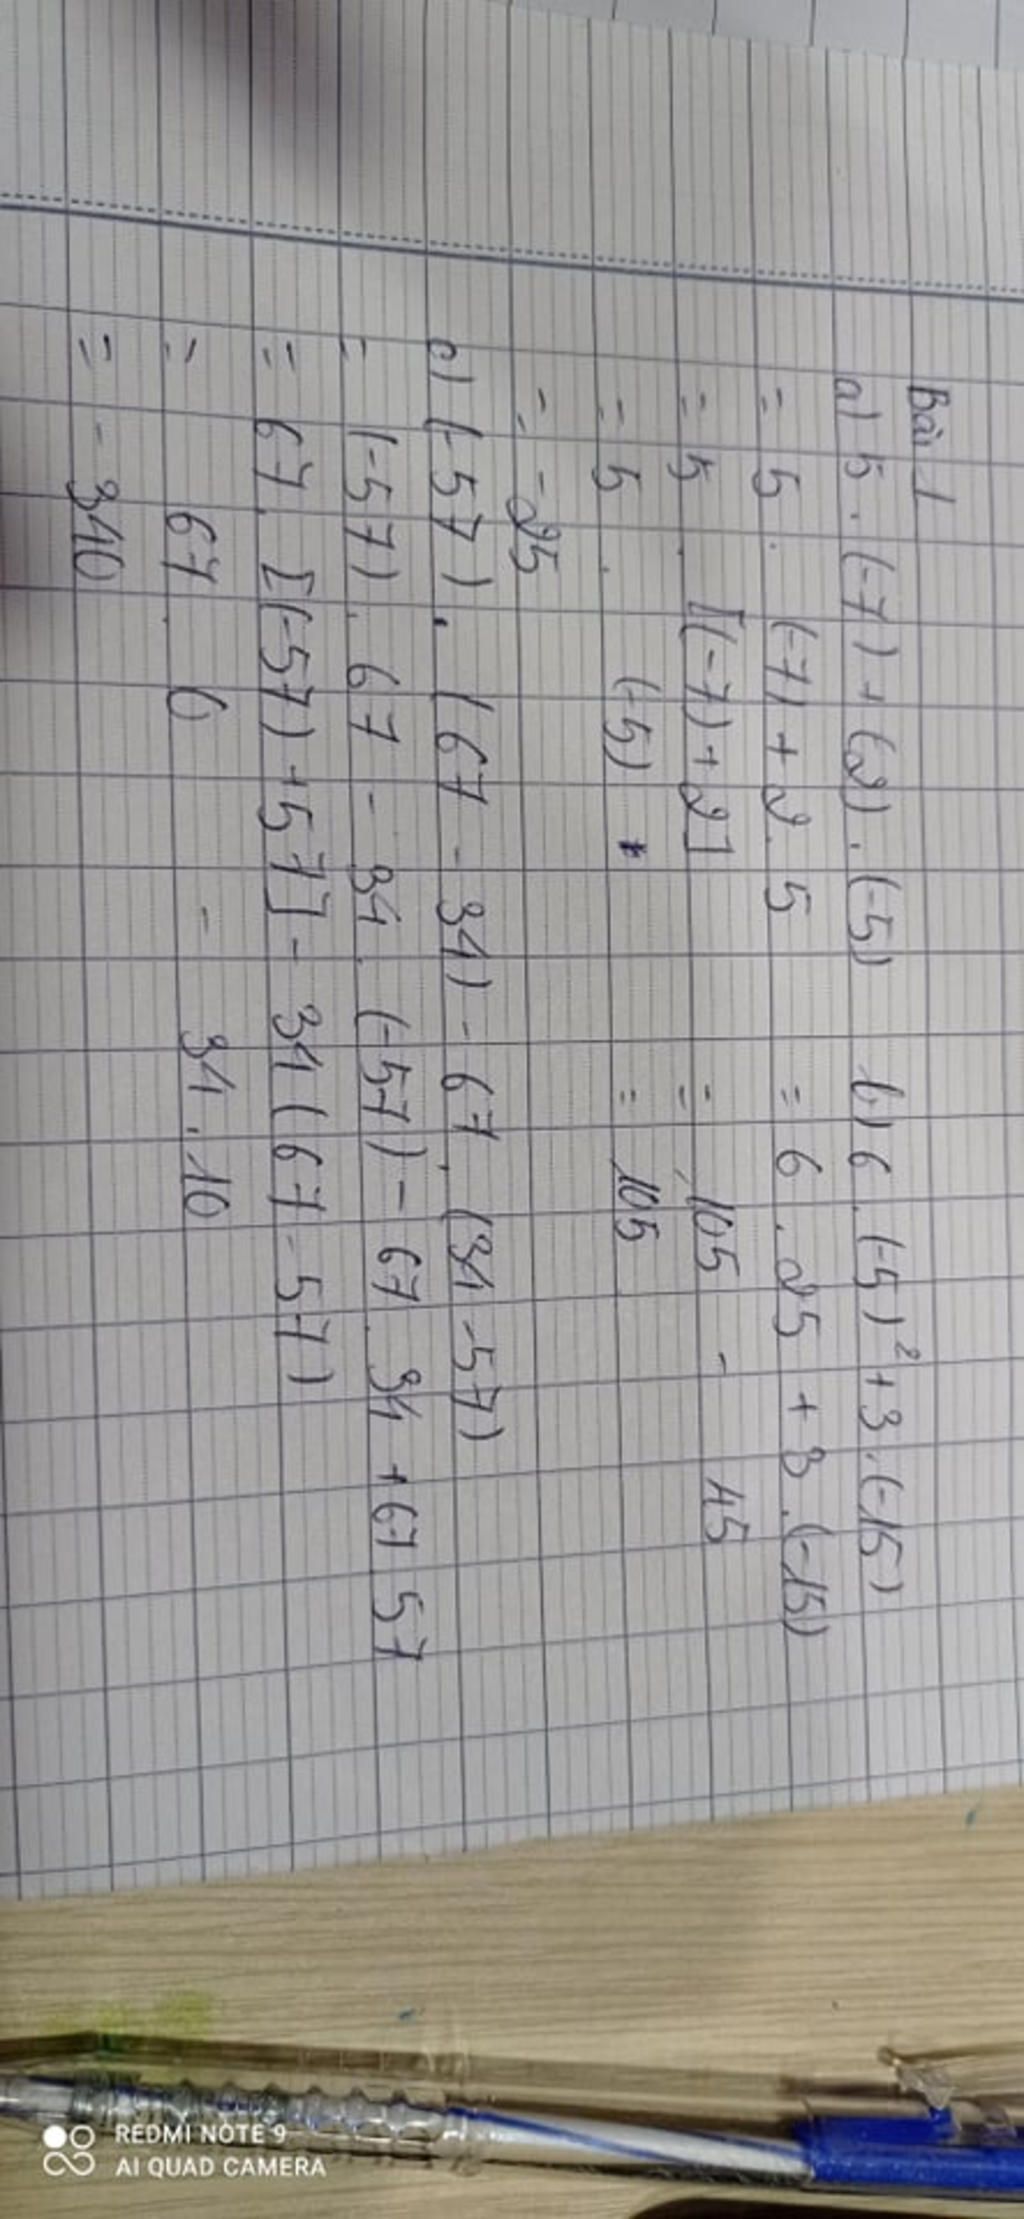 Bài 1
a) 5 . (-7) + (2) . (-5)
= 5 . (-7) + 2 . 5
= 5 . [(-7) + 2]
= 5 . (-5)
= -25
b) 6 . (-5)² + 3 . (-15)
= 6 . 25 + 3 . (-15)
= 105 - 45
= 105
c) (-57) . (67 - 34) - 67 . (34 - 57)
= (-57) . 67 - 34 . (-57) - 67 . 34 + 67 57
= 67 . [(-57) + 57] - 34 (67 - 57)
= 67 . 0 - 34 . 10
= - 340
REDMI NOTE 9
AI QUAD CAMERA